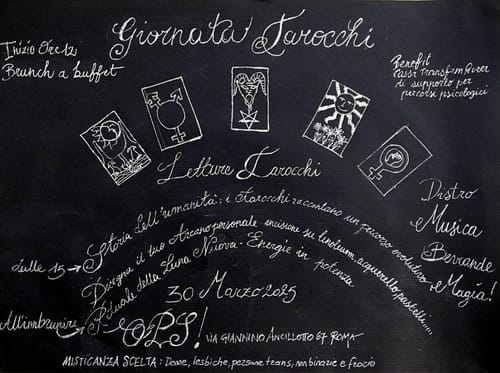 Giornata Tarocchi
Inizio Ore 12
Brunch a buffet
Benefit
Cassa TransFem Queer
di supporto per
percorsi psicologici
Letture Tarocchi
Storia dell'umanità: i Tarocchi raccontano un percorso evolutivo
Disegna il tuo Arcano personale incisione su linoleum, acquerello pastelli.....
dalle 15 →
All'imbrunire → Rituale della Luna Nuova - Energie in potenza
Distro
Musica
Bevande
e Magia!
30 Marzo 2025
OPS! VIA GIANNINO ANCILLOTTO 67 ROMA
MISTICANZA SCELTA: Donne, lesbiche, persone trans, non binarie e frocio